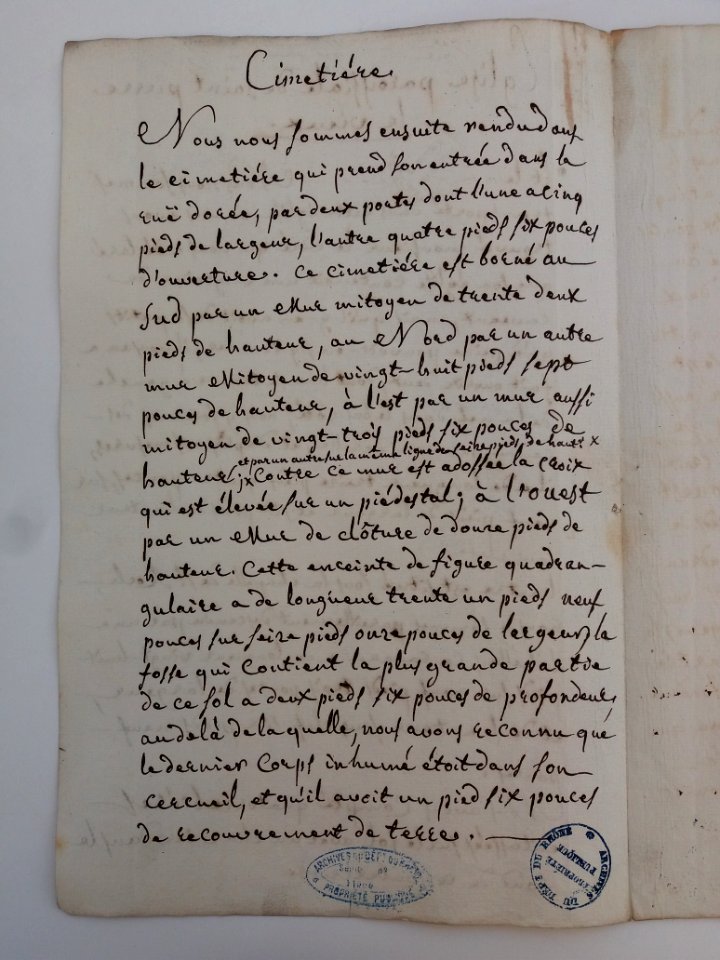 Cimetiére
Nous nous sommes ensuite rendu dans
le cimetiére qui prend son entrée dans la
ruë dorée, par deux portes dont l'une a cinq
pieds de largeur, l'autre quatre pieds six pouces
d'ouverture. Ce cimetiére est borné au
Sud par un Mur mitoyen de trente deux
pieds de hauteur, au Nord par un autre
mur Mitoyen de vingt-huit pieds sept
pouces de hauteur, à l'est par un mur aussi
mitoyen de vingt-trois pieds six pouces de
et par un autre sur la même ligne de seize pieds de hautr x
hauteur jx Contre ce mur est adossée la croix
qui est élevée sur un piédestal; à l'ouest
par un Mur de clôture de douze pieds de
hauteur. Cette enceinte de figure quadran-
gulaire a de longueur trente un pieds neuf
pouces sur seize pieds onze pouces de largeur, la
fosse qui Contient la plus grande partie
de ce sol a deux pieds six pouces de profondeur,
au delà de la quelle, nous avons reconnu que
le dernier Corps inhumé étoit dans son
cercueil, et qu'il avoit un pied six pouces
de recouvrement de terre.
ARCHIVES DU DEPT DU RHONE
PROPRIÉTÉ PUBLIQUE
ARCHIVES DU DEPT DU RHÔNE
PROPRIÉTÉ PUBLIQUE